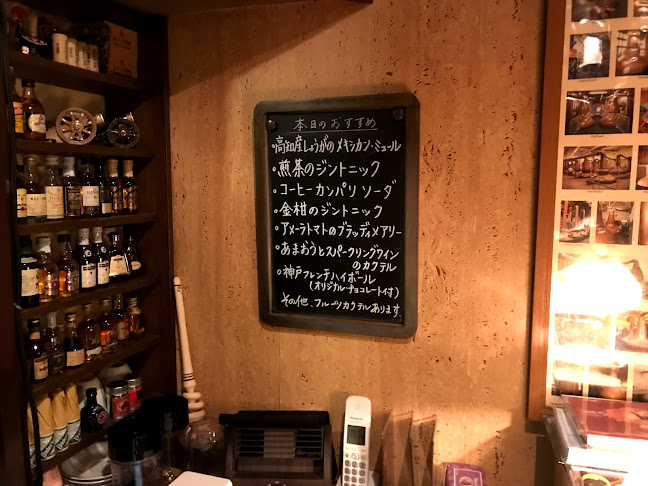 本日のおすすめ
・高知産しょうがのメキシカン・ミュール
・煎茶のジントニック
・コーヒーカンパリソーダ
・金柑のジントニック
・アメーラトマトのブラッディメアリー
・あまおうとスパークリングワイン
のカクテル
・神戸フレンチハイボール
(オリジナルチョコレート付)
その他、フルーツカクテルあります。
Panasonic